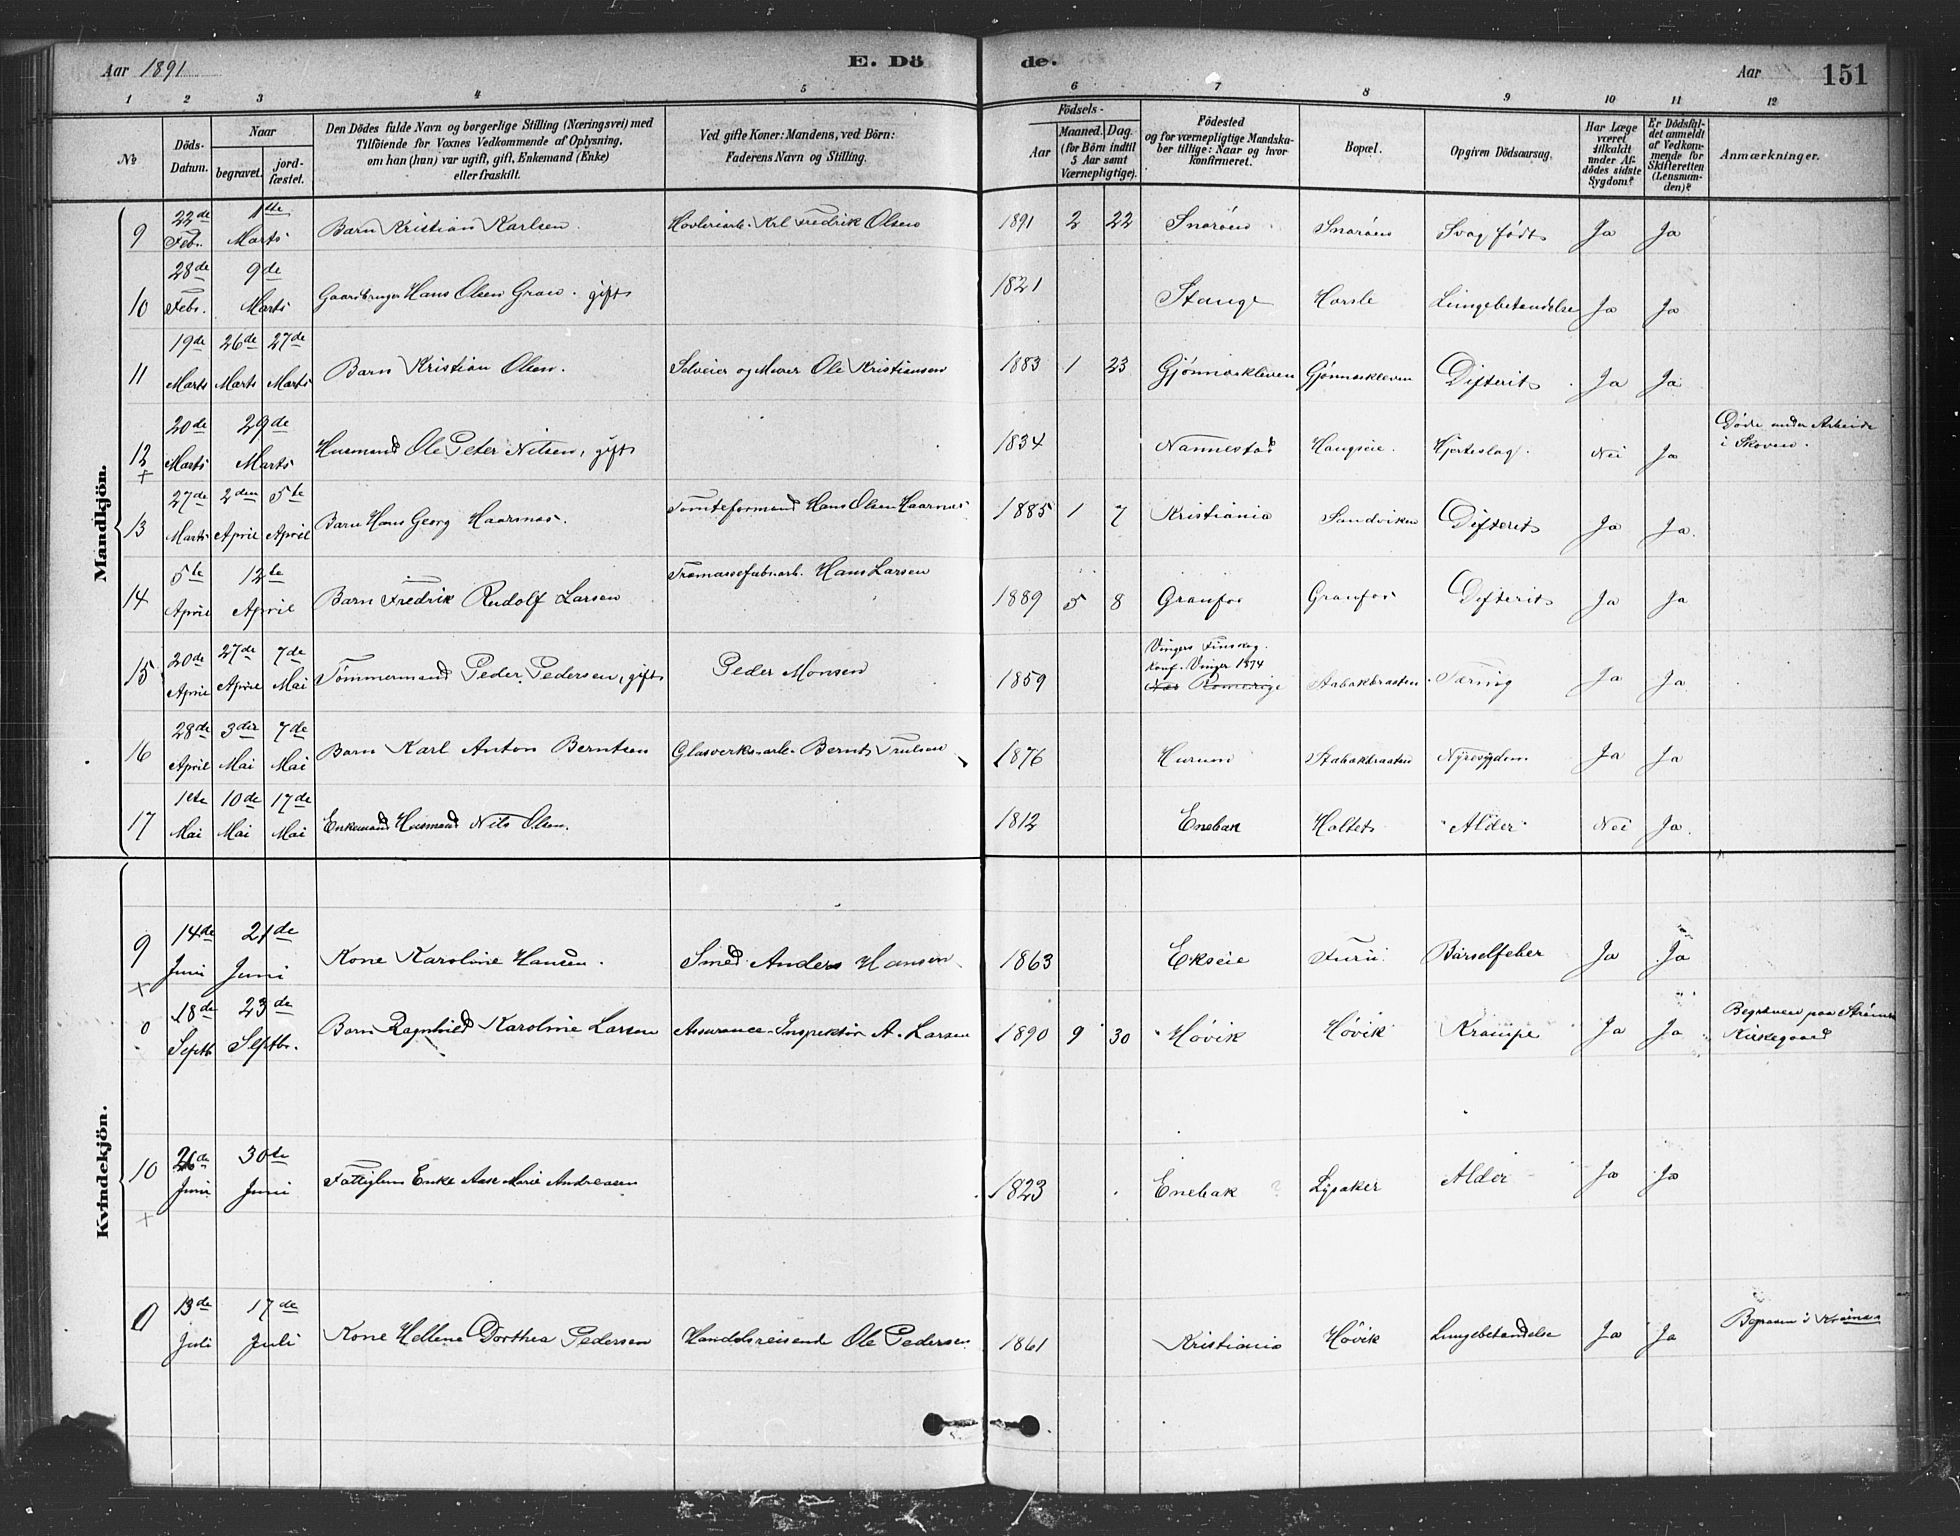 Aar 1891
E. Dö
de.
Aar
151
1 2 3 4 5 6 7 8 9 10 11 12
№
Döds-Datum.
Naar
begravet.
jord-fæstet.
Den Dödes fulde Navn og borgerlige Stilling (Næringsvei) med
Tilföiende for Voxnes Vedkommende af Oplysning,
om han (hun) var ugift, gift, Enkemand (Enke)
eller fraskilt.
Ved gifte Koner: Mandens, ved Börn:
Faderens Navn og Stilling.
Födsels-
Aar
Maaned. Dag.
(for Börn indtil
5 Aar samt
Værnepligtige).
Födested
og for værnepligtige Mandska-
ber tillige: Naar og hvor
konfirmeret.
Bopæl.
Opgiven Dödsaarsag.
Har Læge
været
tilkaldt
under Af-
dödes sidste
Sygdom?
Er Dödsfal-
det anmeldt
af Vedkom-
mende for
Skifteretten
(Lensman-
den)?
Anmærkninger.
Mandkjön.
9 22de Febr. 1ste Marts Barn Kristian Karlsen. Høvleriarb. Karl Fredrik Olsen 1891 2 22 Snarøen Snarøen Svag født Ja Ja
10 28de Febr. 9de Marts Gaardbruger Hans Olsen Grav. gift 1821 Stange Harsle Lungebetændelse Ja Ja
11 19de Marts 26de Marts 27de Marts Barn Kristian Olsen. Selveier og Murer Ole Kristiansen 1883 1 23 Gjønneskleven Gjønneskleven Difterit Ja Ja
12 + 20de Marts 29de Marts Husmand Ole Peter Nilsen, gift 1834 Nannestad Haugseie. Hjerteslag. Nei Ja Døde under Arbeide
i Skoven.
13 27de Marts 2den April 5te April Barn Hans Georg Haarnæs. Tomteformand Hans Olsen Haarnæs 1885 1 7 Kristiania Sandviken Difterit Ja Ja.
14 5te April 12te April Barn Fredrik Rudolf Larsen Træmassefabrarb. Hans Larsen 1889 5 8 Granfos Granfos Difterit Ja Ja
15 20de April 27de April 7de Mai Tømmermand Peder Pedersen, gift Peder Monsen 1859 Vingers Finskog.
Konf. Vinger 1874
Næs Romerige Stabækbraaten Tæring Ja Ja
16 28de April 3die Mai 7de Mai Barn Karl Anton Berntsen Glasverksarb. Bernt Trulsen 1876 Hurum Stabækbraaten Nyresygdom Ja Ja
17 1ste Mai 10de Mai 17de Mai Enkemand Husmand Nils Olsen. 1812 Enebak Holtet Alder Nei Ja.
Kvindekjön.
9 + 14de Juni 21de Juni Kone Karoline Hansen. Smed Anders Hansen 1863 Ekseie Furu Barselfeber Ja Ja
0 18de Septb. 23de Septbr. Barn Ragnhild Karoline Larsen Assurance-Inspektør A. Larsen 1890 9 30 Høvik Høvik Krampe Ja Ja Begraven paa
Kirkegaard
10 + 26de Juni 30te Juni Fattiglem Enke Aase Marie Andreasen 1823 Enebak ? Lysaker Alder Ja Ja
0 13de Juli 17de Juli Kone Hellene Dorthea Pedersen Handelsreisende Ole Pedersen 1861 Kristiania Høvik Lungebetændelse Ja Ja